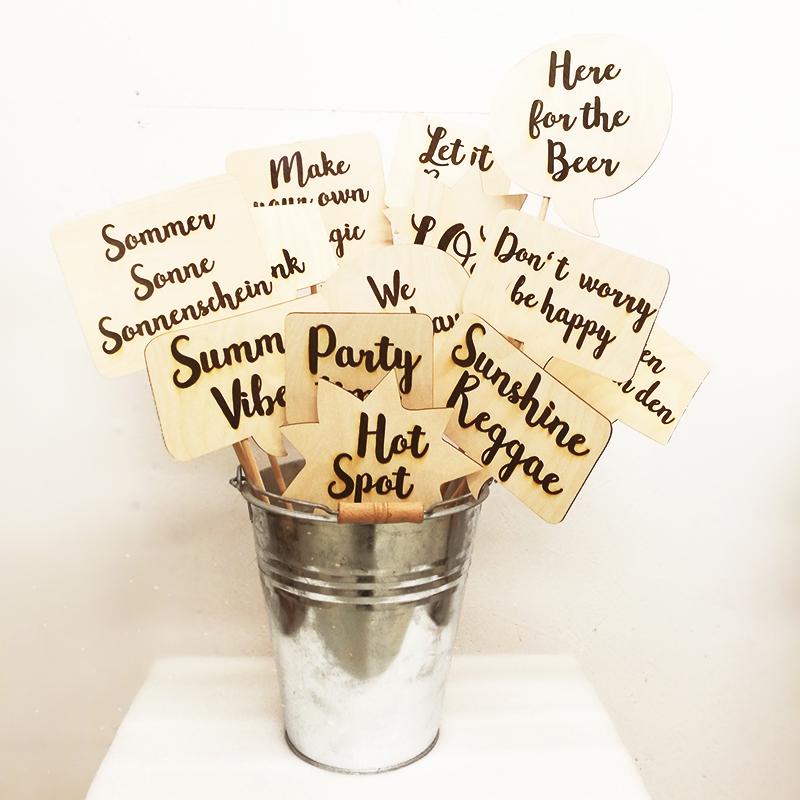 Here
for the
Beer
Let it
Make
your own
Sommer
Sonne
Sonnenschein
Don't worry
be happy
We
Party
Sunshine
Reggae
Hot
Spot